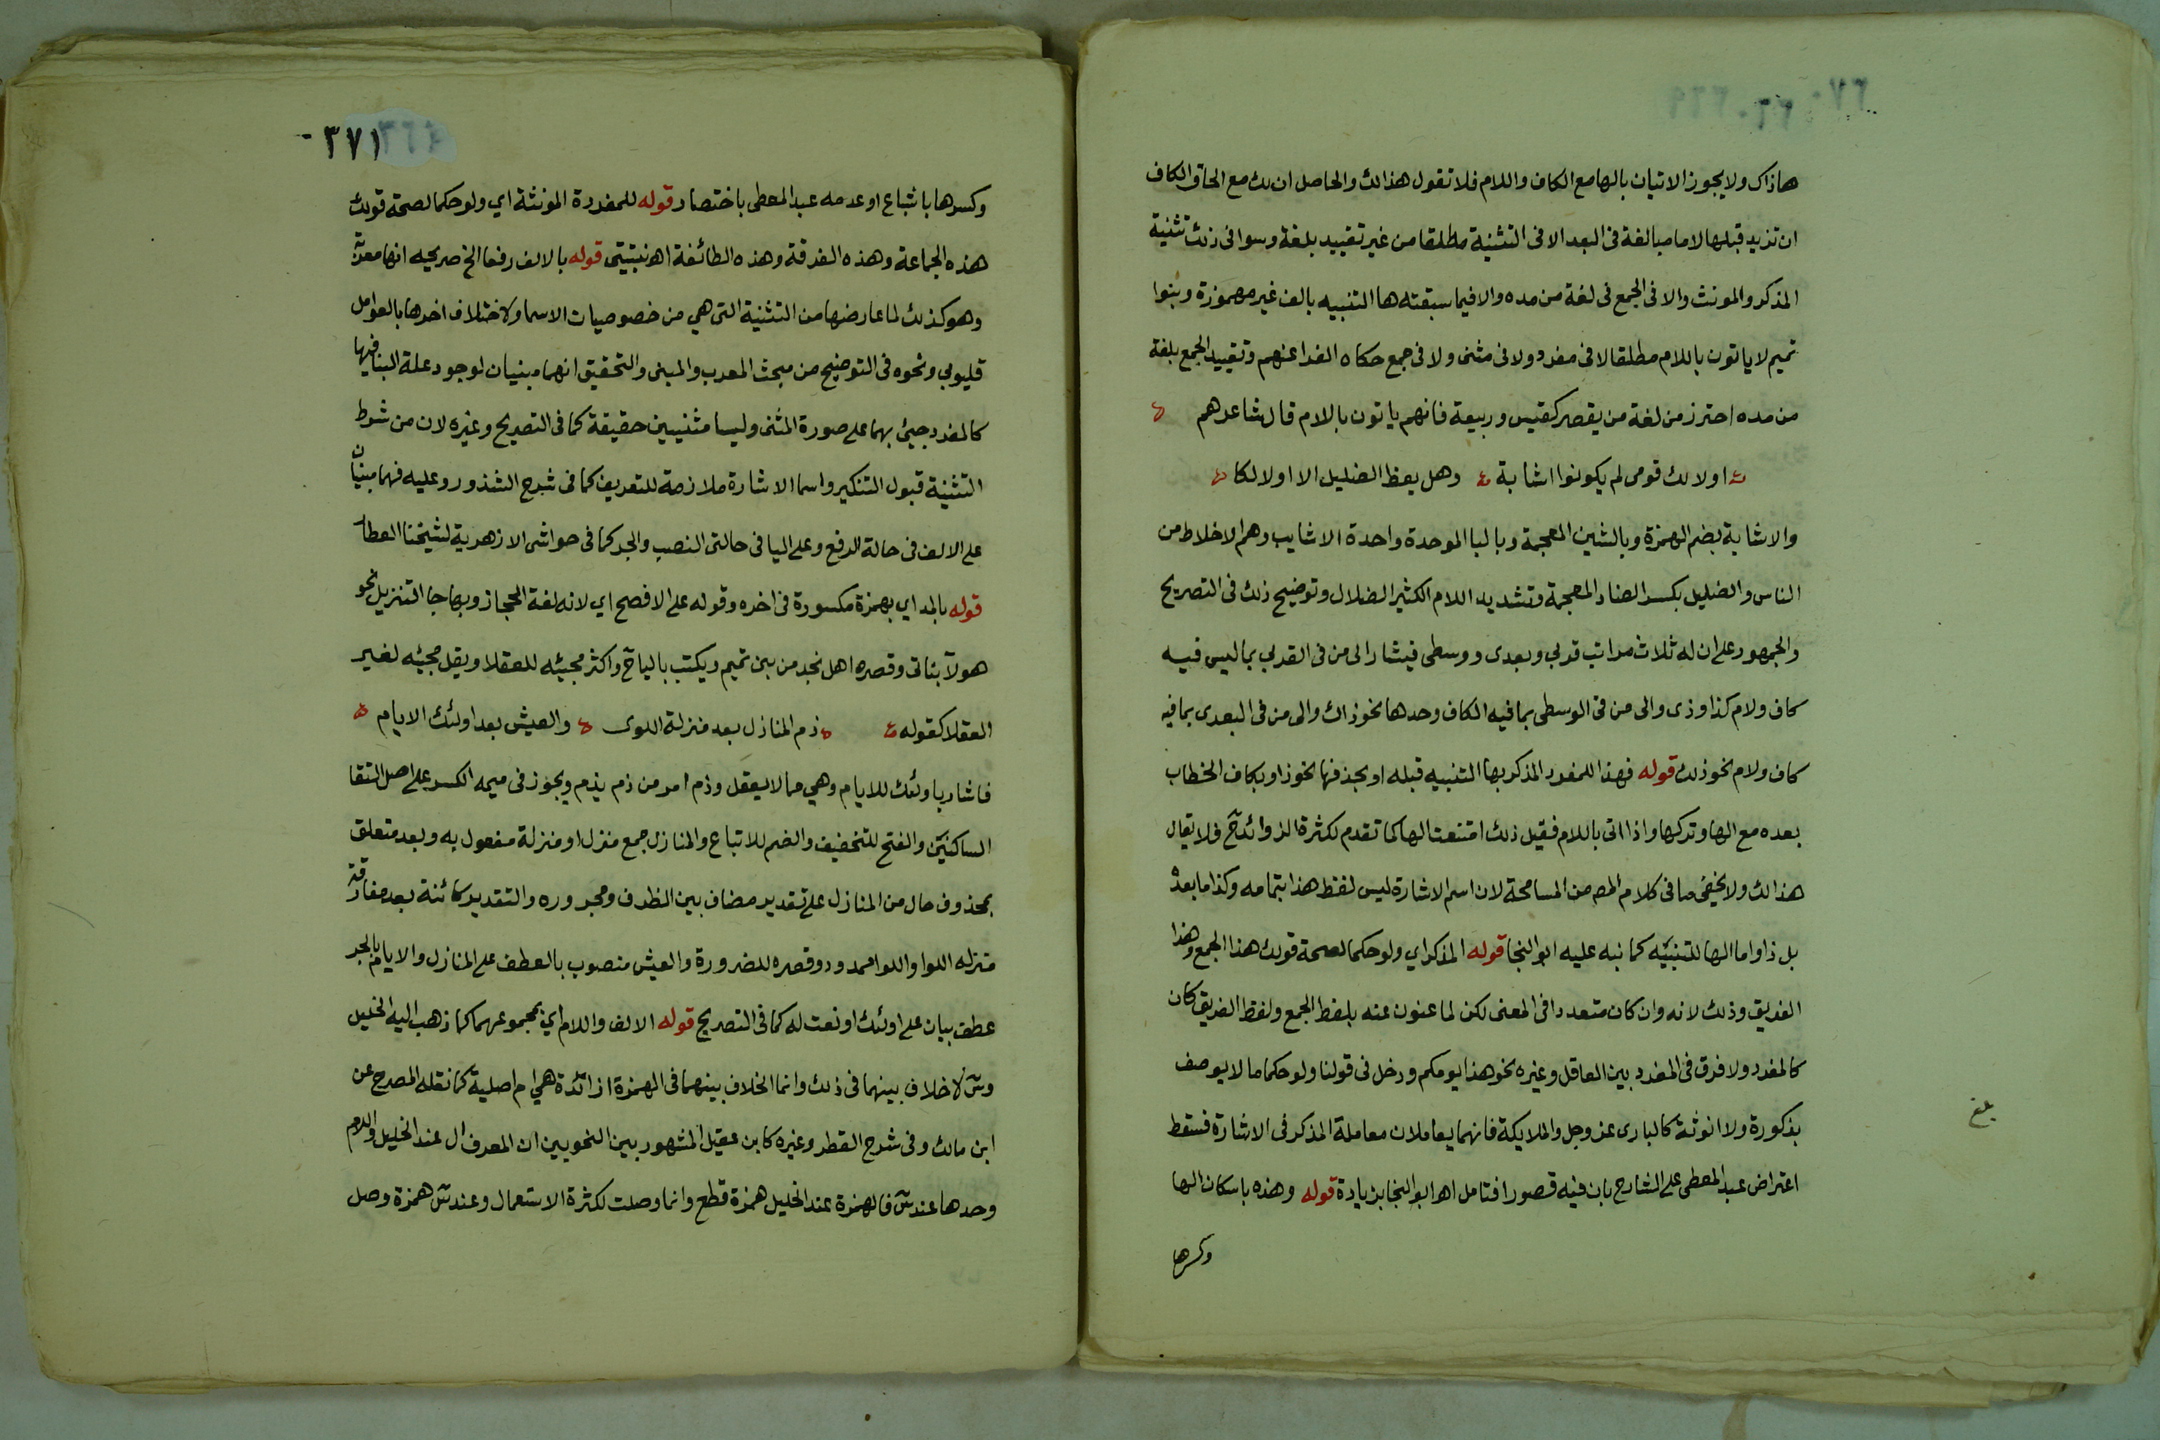 هاذاك ولا يجوز الاتيان بالها مع الكاف واللام فلا تقول هذالك والحاصل ان لك مع الحاق الكاف
ان تزيد قبلها لاما مبالغة فى البعد الا فى التثنية مطلقا من غير تقييد بلغة وسوا فى ذلك تثنية
المذكر والمونث والا فى الجمع فى لغة من مده والا فيما سبقته ها التنبيه بالف غير مهموزة وبنوا
تميم لا ياتون باللام مطلقا لا فى مفرد ولا فى مثنى ولا فى جمع حكاه الفرا عنهم وتقييد الجمع بلغة
من مده احترز من لغة من يقصر كقيس وربيعة فانهم ياتون باللام قال شاعرهم
اولالك قومى لم يكونوا اشابة وهل يعظ الضليل الا اولالكا
والاشابة بضم الهمزة وبالشين المعجمة وبالبا الموحدة واحدة الاشايب وهم الاخلاط من
الناس والضليل بكسر الضاد المعجمة وتشديد اللام الكثير الضلال وتوضيح ذلك فى التصريح
والجمهور على ان له ثلاث مراتب قربى وبعدى ووسطى فيشار الى من فى القربى بما ليس فيه
كاف ولام كذا وذى والى من فى الوسطى بما فيه الكاف وحدها نحو ذاك والى من فى البعدى بما فيه
كاف ولام نحو ذلك قوله فهذا للمفرد المذكر بها التنبيه قبله او بحذفها نحو ذا وبكاف الخطاب
بعده مع الها وتركها واذا اتى باللام فقيل ذلك امتنعت الها كما تقدم لكثرة الزوائد ح فلا يقال
هذالك ولا يخفى ما فى كلام المص من المسامحة لان اسم الاشارة ليس لفظ هذا بتمامه وكذا ما بعده
بل ذا واما الها للتنبيه كما نبه عليه ابو النجا قوله المذكر اي ولو حكما لصحة قولك هذا الجمع وهذا
الفريق وذلك لانه وان كان متعددا فى المعنى لكن لما عنون عنه بلفظ الجمع ولفظ الفريق كان
كالمفرد ولا فرق فى المفرد بين العاقل وغيره نحو هذا يومكم ودخل فى قولنا ولو حكما ما لا يوصف
بذكورة ولا انوثة كالبارى عز وجل والملايكة فانهما يعاملان معاملة المذكر فى الاشارة فسقط
اعتراض عبد المعطى على الشارح بان فيه قصورا فتامل اهـ ابو النجا بزيادة قوله وهذه باسكان الها
وكسرها
٣٧١
وكسرها باشباع او عدمه عبد المعطى باختصار قوله للمفردة المونثة اي ولو حكما لصحة قولك
هذه الجماعة وهذه الفرقة وهذه الطائفة اهـ نبتيتى قوله بالالف رفعا الخ صريحه انها معربة
وهو كذلك لما عارضها من التثنية التى هي من خصوصيات الاسما ولاختلاف اخرها بالعوامل
قليوبي ونحوه فى التوضيح من مبحث المعرب والمبنى والتحقيق انهما مبنيان لوجود علة البنا فيها
كالمفرد جيئ بهما على صورة المثنى وليسا مثنيين حقيقة كما فى التصريح وغيره لان من شرط
التثنية قبول التنكير واسما الاشارة ملازمة للتعريف كما فى شرح الشذور وعليه فهما مبنيان
على الالف فى حالة الرفع وعلى اليا فى حالتى النصب والجر كما فى حواشى الازهرية لشيخنا العطار
قوله بالمد اي بهمزة مكسورة فى اخره وقوله على الافصح اي لانه لغة الحجاز وبها جا التنزيل نحو
هولآ بناتى وقصره اهل نجد من بنى تميم ويكتب باليا ح واكثر مجيئه للعقلا ويقل مجيئه لغير
العقلا كقوله ذم المنازل بعد منزلة اللوى والعيش بعد اولئك الايام
فاشار باولئك للايام وهي مما لا يعقل وذم امر من ذم يذم ويجوز فى ميمه الكسر على اصل التقا
الساكنين والفتح للتخفيف والضم للاتباع والمنازل جمع منزل او منزلة مفعول به وبعد متعلق
بمحذوف حال من المنازل على تقدير مضاف بين الظرف ومجروره والتقدير كائنة بعد مفارقة
منزله اللوا واللوا ممدود وقصره للضرورة والعيش منصوب بالعطف على المنازل والايام بالجر
عطف بيان على اولئك او نعت له كما فى التصريح قوله الالف واللام اي مجموعهما كما ذهب اليه الخليل
وس لا خلاف بينهما فى ذلك وانما الخلاف بينهما فى الهمزة ازائدة هي ام اصلية كما نقله المصرح عن
ابن مالك وفى شرح القطر وغيره كابن عقيل المشهور بين النحويين ان المعرف ال عند الخليل واللام
وحدها عند س فالهمزة عند الخليل همزة قطع وانما وصلت لكثرة الاستعمال وعند س همزة وصل